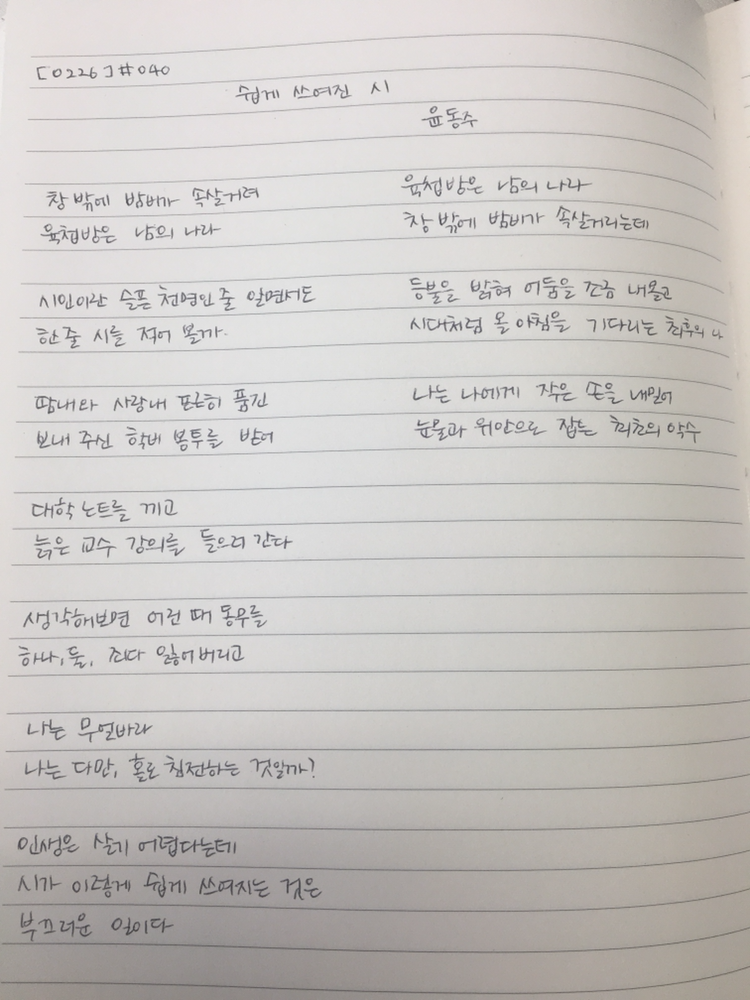 [0226]#040
쉽게 쓰여진 시
윤동주
창 밖에 밤비가 속살거려
육첩방은 남의 나라
시인이란 슬픈 천명인 줄 알면서도
한 줄 시를 적어 볼까.
땀내와 사랑내 포근히 품긴
보내 주신 학비 봉투를 받어
대학 노트를 끼고
늙은 교수 강의를 들으러 간다
생각해보면 어린 때 동무를
하나, 둘, 죄다 잃어버리고
나는 무얼바라
나는 다만, 홀로 침전하는 것일까?
인생은 살기 어렵다는데
시가 이렇게 쉽게 쓰여지는 것은
부끄러운 일이다
육첩방은 남의 나라
창 밖에 밤비가 속살거리는데
등불을 밝혀 어둠을 조금 내몰고
시대처럼 올 아침을 기다리는 최후의 나
나는 나에게 작은 손을 내밀어
눈물과 위안으로 잡는 최초의 악수